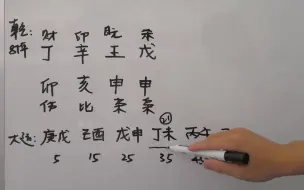 乾: 财 印 日元 杀
丁 辛 壬 戊
卯 亥 申 申
伤 比 枭 枭
大运: 庚戌 己酉 戊申 丁未 丙午
5 15 25 35 45